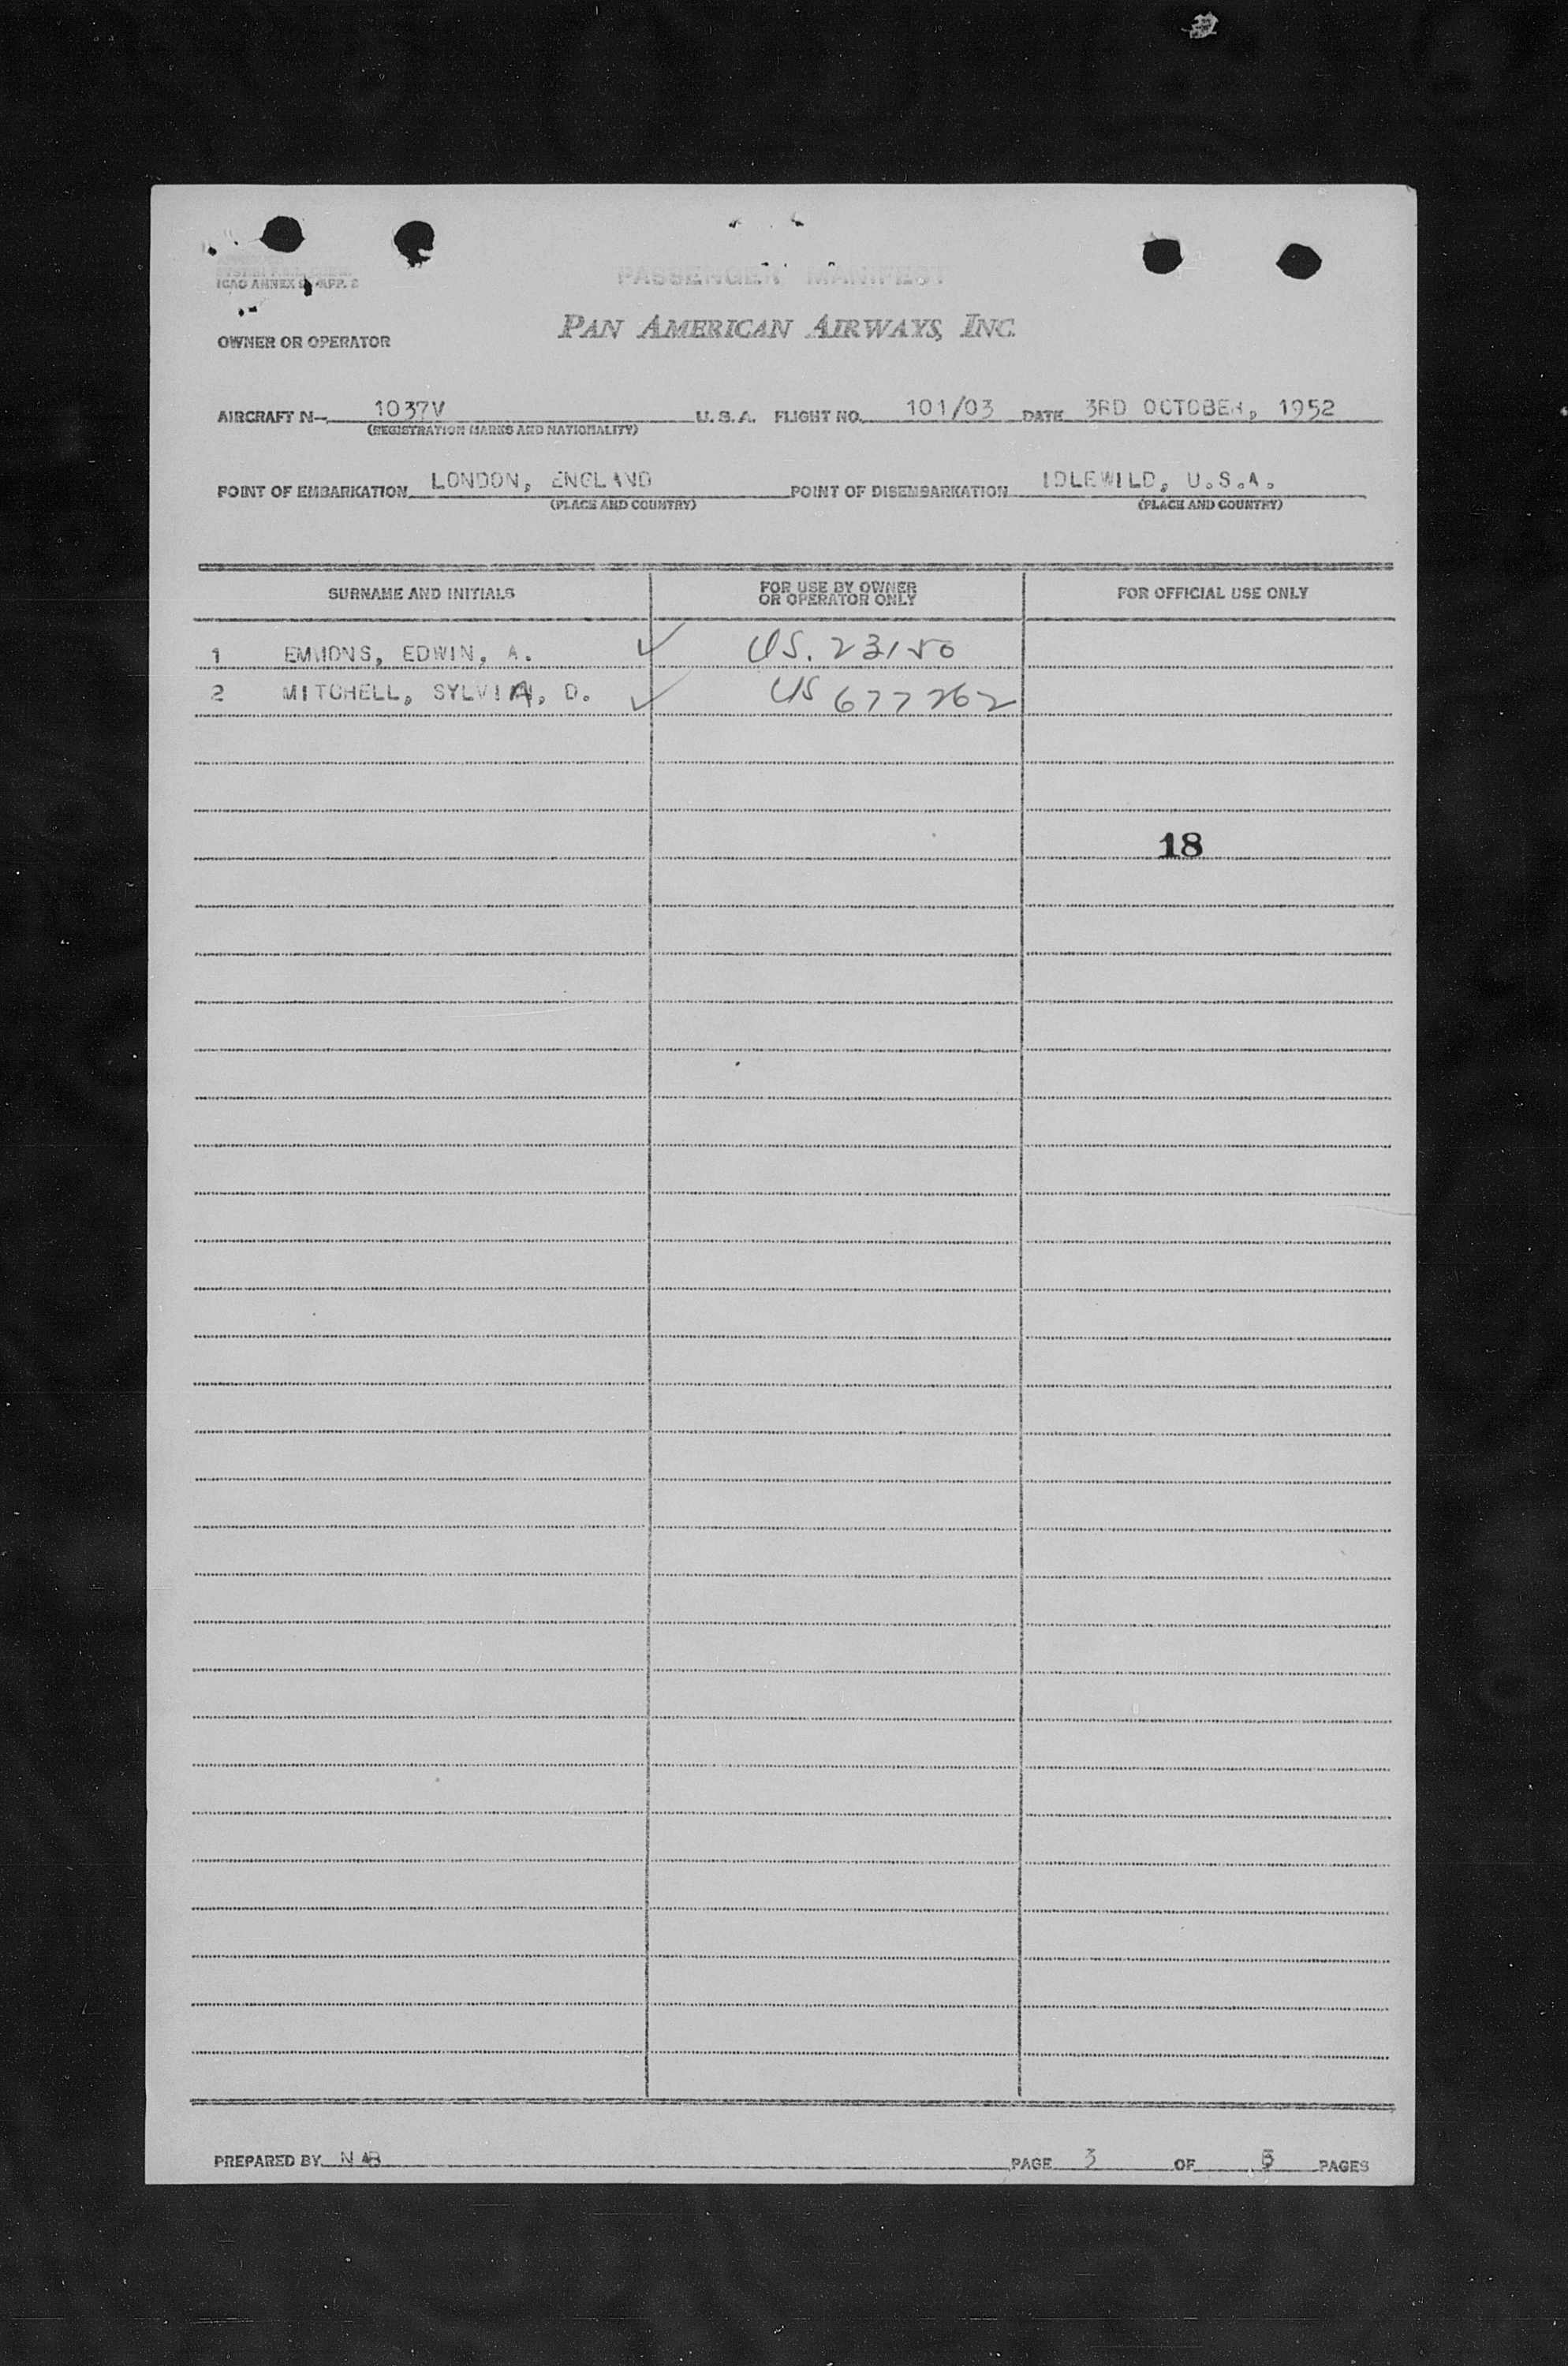 ICAO ANNEX 9 APP. 2
PASSENGER MANIFEST
OWNER OR OPERATOR
PAN AMERICAN AIRWAYS, INC.
AIRCRAFT N- 1037V U. S. A. FLIGHT NO. 101/03 DATE 3RD OCTOBER, 1952
(REGISTRATION MARKS AND NATIONALITY)
POINT OF EMBARKATION LONDON, ENGLAND POINT OF DISEMBARKATION IDLEWILD, U.S.A.
(PLACE AND COUNTRY) (PLACE AND COUNTRY)
SURNAME AND INITIALS
FOR USE BY OWNER
OR OPERATOR ONLY
FOR OFFICIAL USE ONLY
1 EMMONS, EDWIN, A. ✓ US. 23150
2 MITCHELL, SYLVIA, D. ✓ US 677262
18
PREPARED BY NAB PAGE 3 OF 5 PAGES